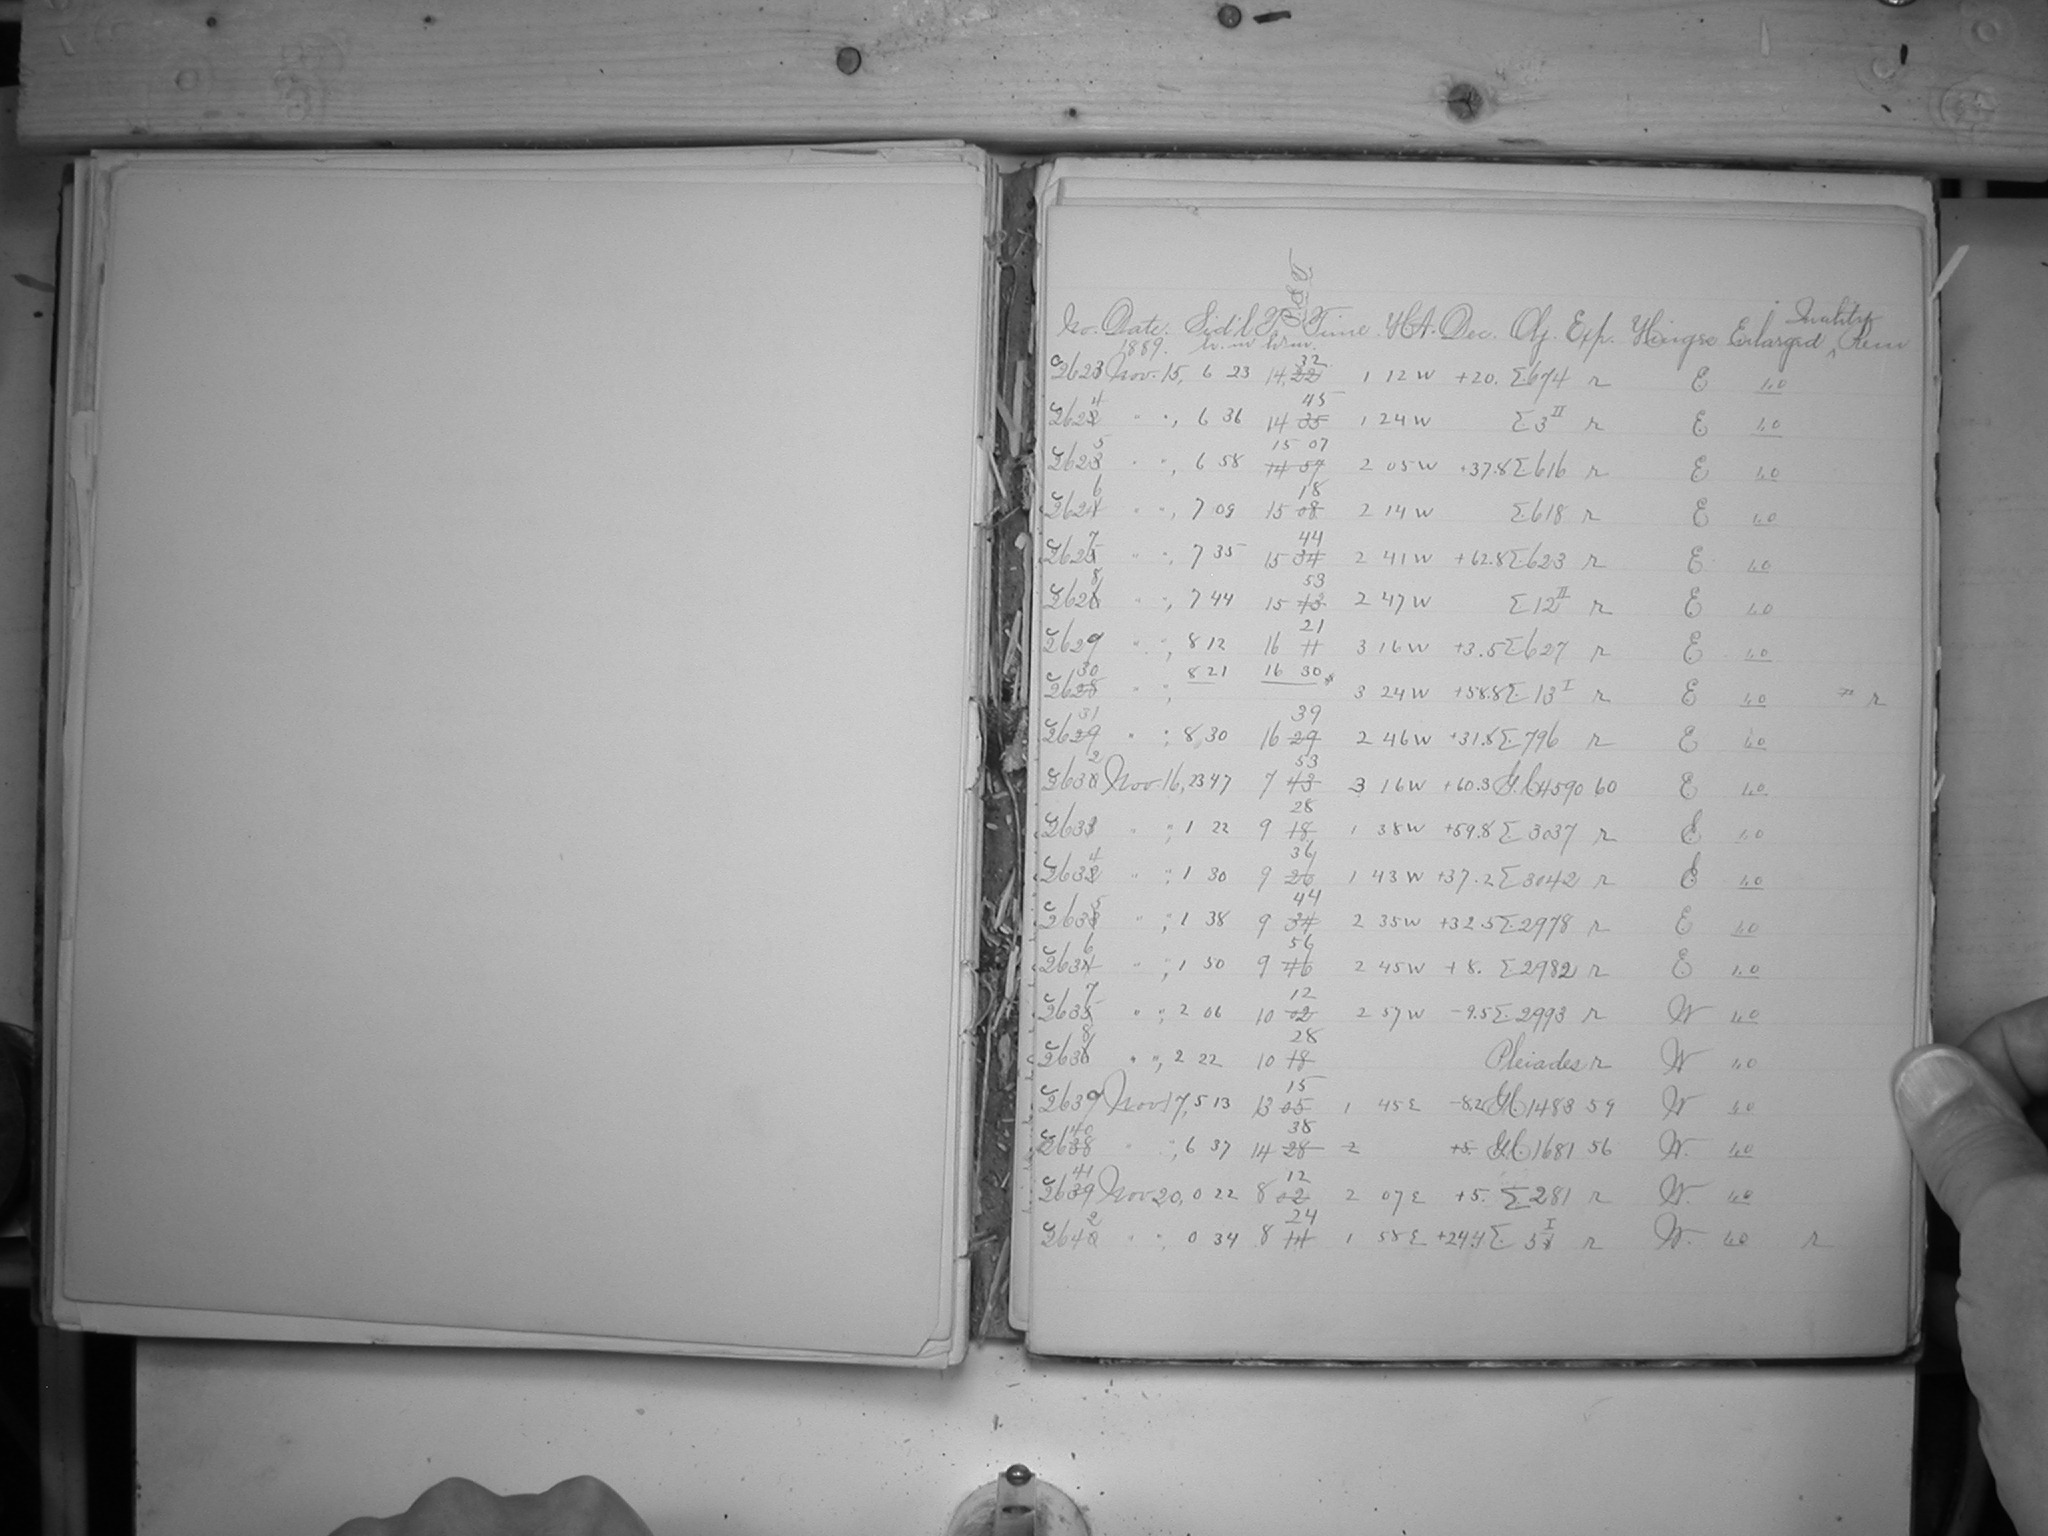 No. Date. Sid'l T. Time. H.A. Dec. Obj. Exp. Hinge Enlarged Quality Rem
1889. h. m h. m.
2623 Nov. 15, 6 23 14 22 32 1 12 W +20. Σ674 r E 1.0
2624 " ", 6 36 14 35 45 1 24 W Σ3 II r E 1.0
2625 " ", 6 58 14 57 15 07 2 05 W +37.8 Σ616 r E 1.0
2626 " ", 7 09 15 08 18 2 14 W Σ618 r E 1.0
2627 " ", 7 35 15 34 44 2 41 W +62.8 Σ623 r E 1.0
2628 " ", 7 44 15 43 53 2 47 W Σ12 II r E 1.0
2629 " ", 8 12 16 11 21 3 16 W +3.5 Σ627 r E 1.0
2630 " ", 8 21 16 30 3 24 W +58.8 Σ13 I r E 1.0 r
2631 " ", 8 30 16 29 39 2 46 W +31.8 Σ796 r E 1.0
2632 Nov. 16, 23 47 7 43 53 3 16 W +60.3 G.C. 4590 60 E 1.0
2633 " ", 1 22 9 18 28 1 38 W +59.8 Σ3037 r E 1.0
2634 " ", 1 30 9 26 36 1 43 W +37.2 Σ3042 r E 1.0
2635 " ", 1 38 9 34 44 2 35 W +32.5 Σ2978 r E 1.0
2636 " ", 1 50 9 46 56 2 45 W +8. Σ2982 r E 1.0
2637 " ", 2 06 10 02 12 2 57 W -9.5 Σ2993 r W 1.0
2638 " ", 2 22 10 18 28 Pleiades r W 1.0
2639 Nov 17, 5 13 13 05 15 1 45 E -8.2 G.C. 1483 59 W 1.0
2640 " ", 6 37 14 28 38 2 +5. G.C. 1681 56 W. 1.0
2641 Nov 20, 0 22 8 02 12 2 07 E +5. Σ281 r W. 1.0
2642 " ", 0 34 8 14 24 1 58 E +24.4 Σ 5 I r W. 1.0 r